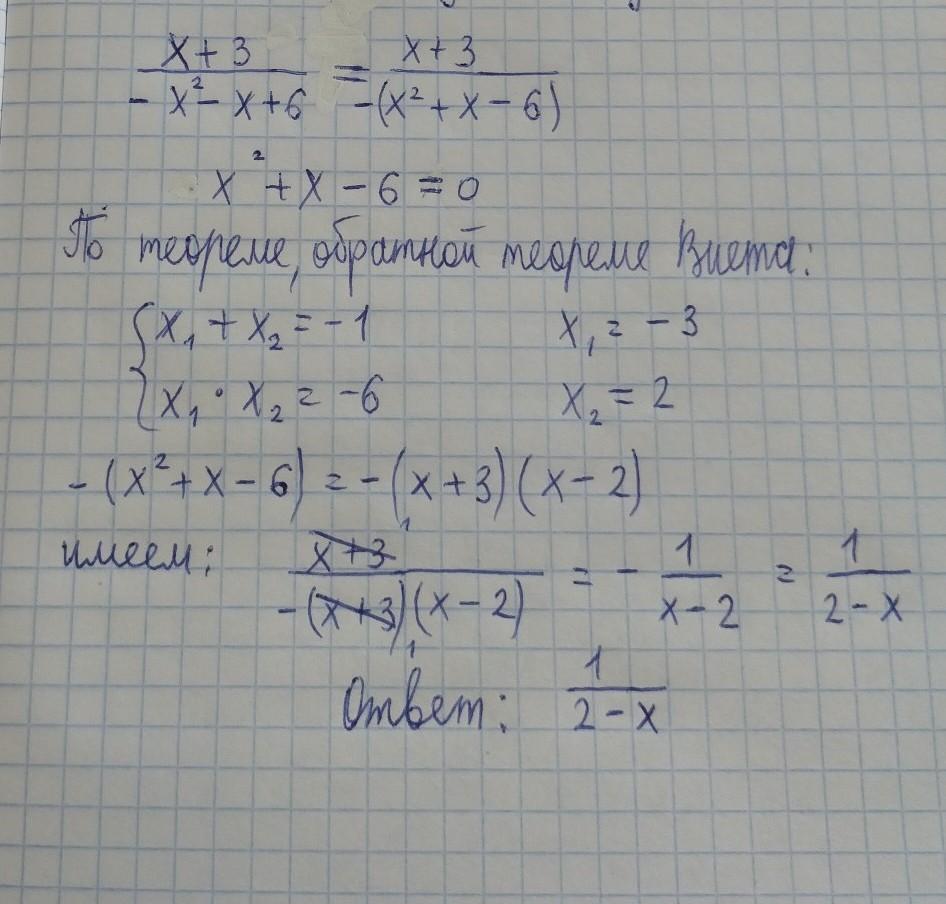 x+3 / -x²-x+6 = x+3 / -(x²+x-6)
x²+x-6=0
По теореме, обратной теореме Виета:
{ x₁+x₂=-1 x₁=-3
x₁·x₂=-6 x₂=2
-(x²+x-6)=-(x+3)(x-2)
имеем: x+3 ¹ / -(x+3)₁(x-2) = - 1 / x-2 = 1 / 2-x
Ответ: 1 / 2-x